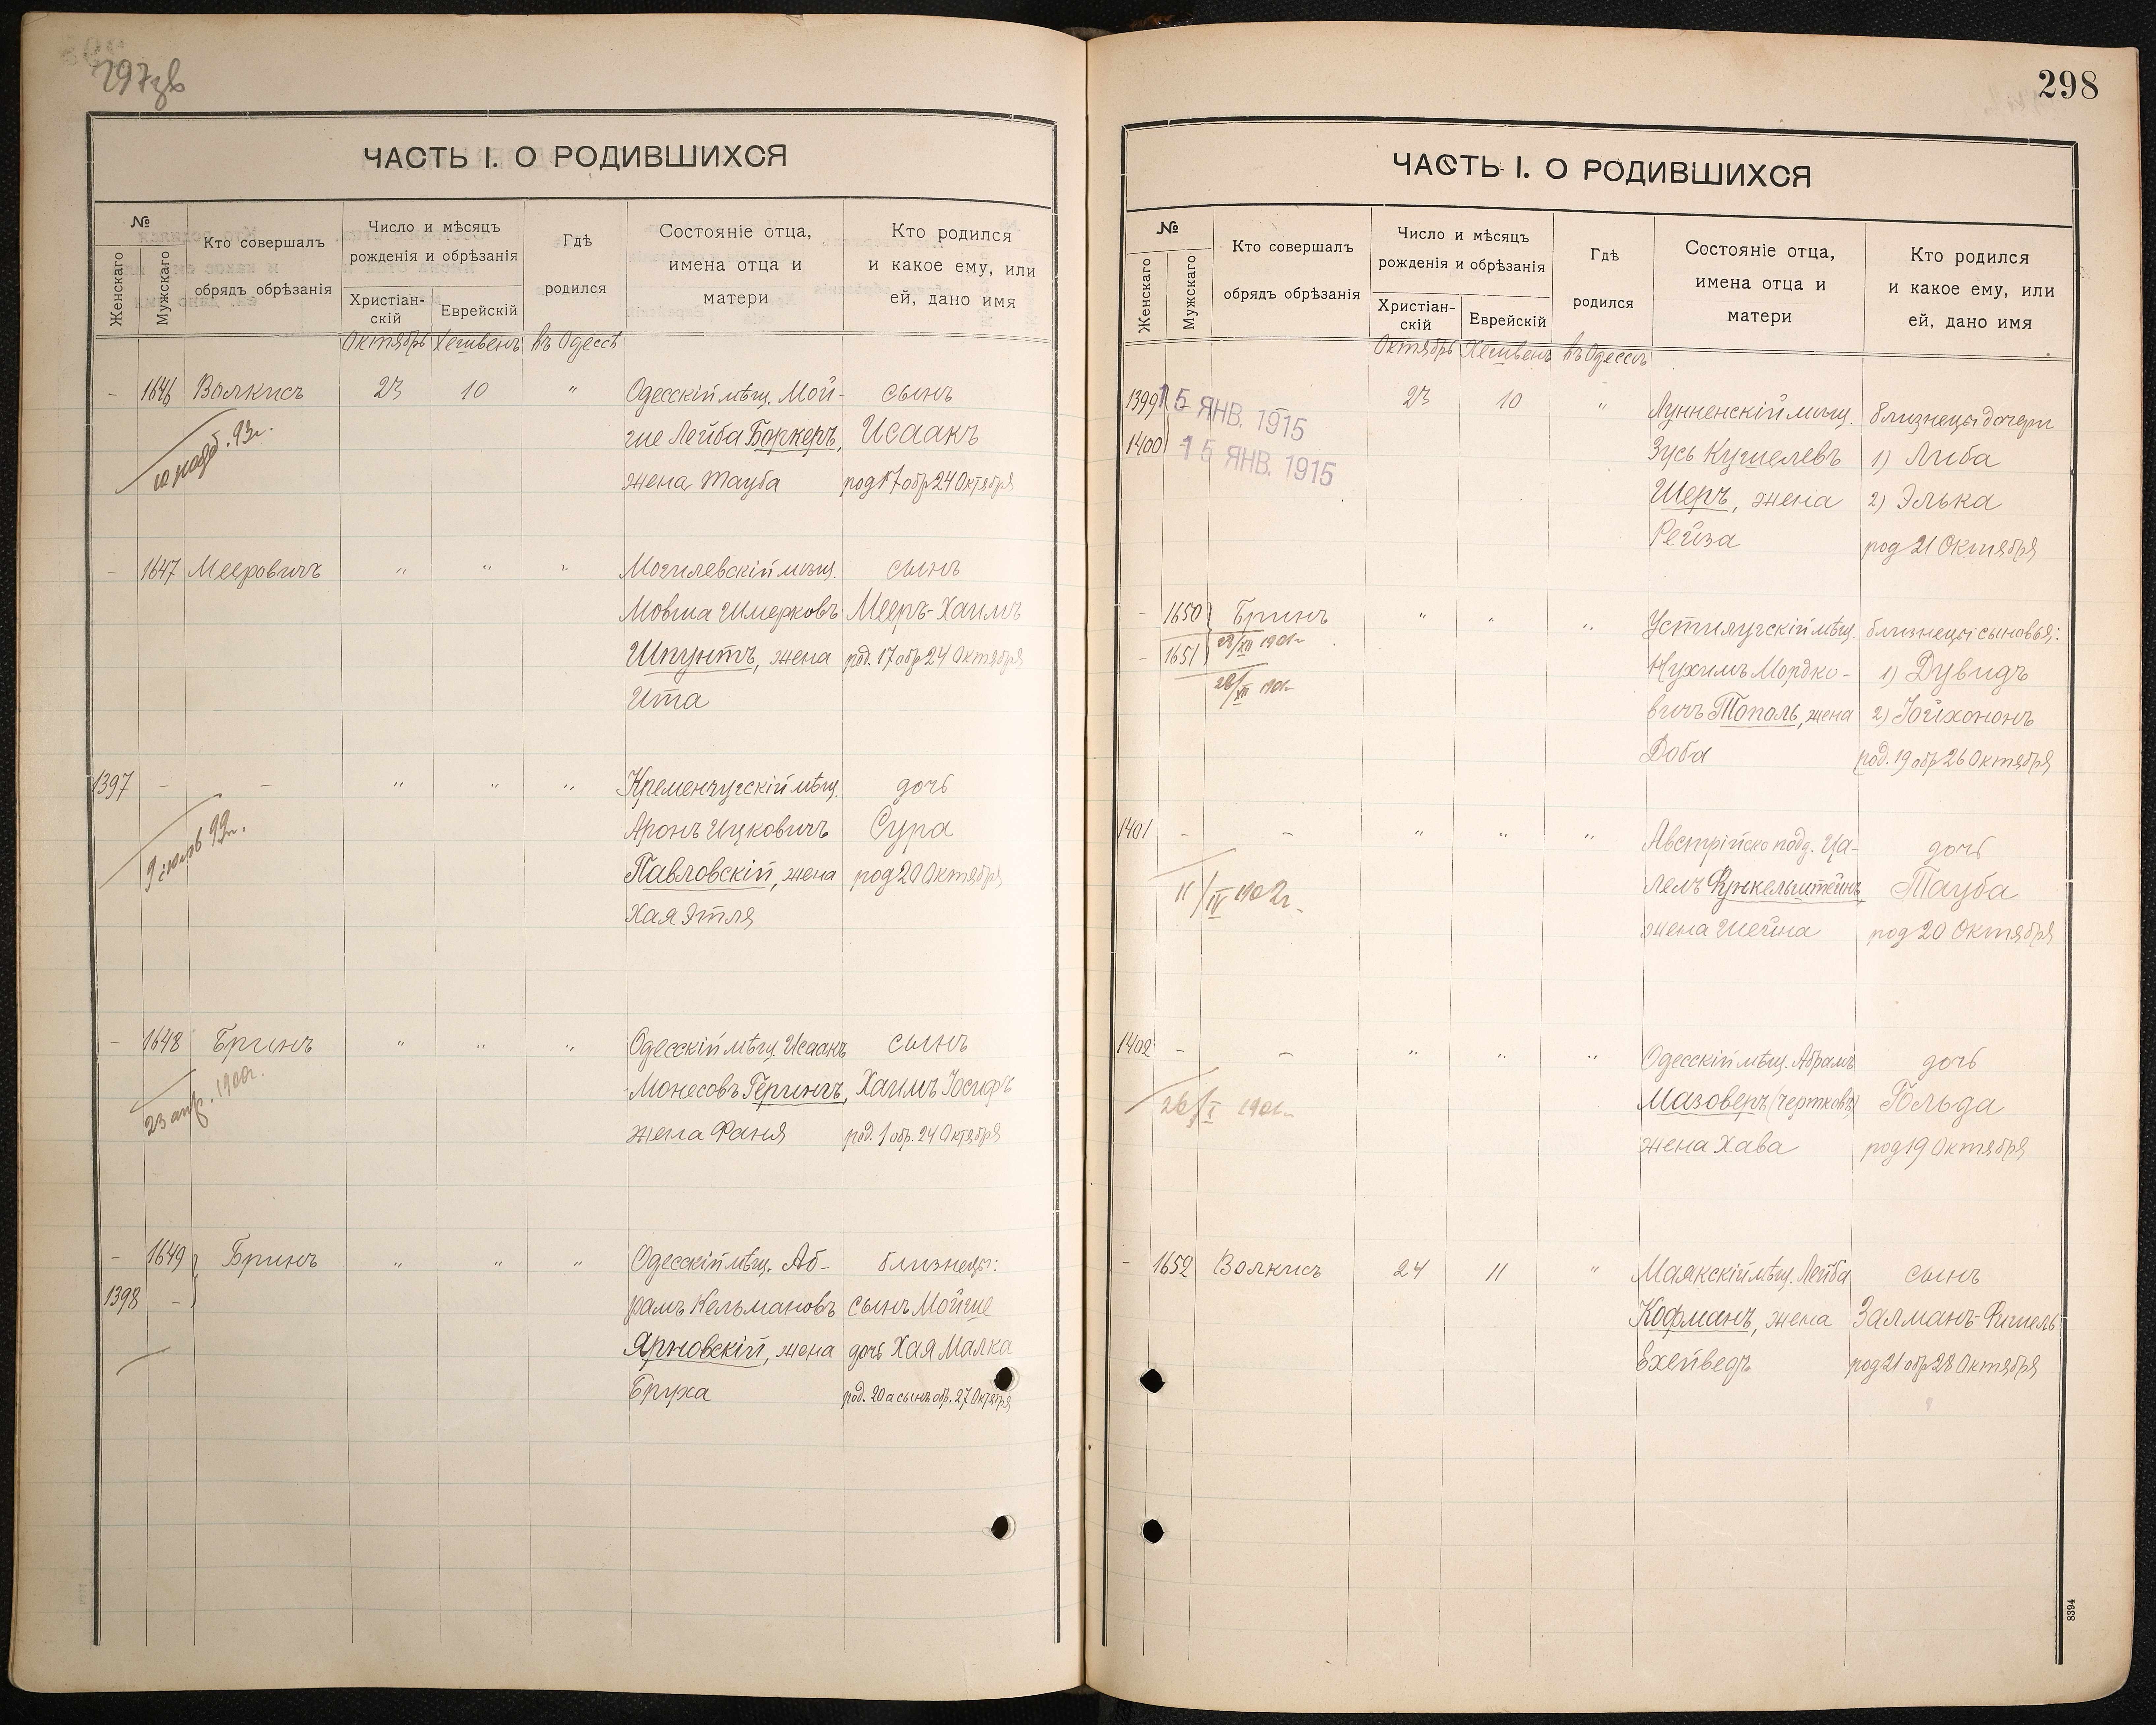 297зв
ЧАСТЬ I. О РОДИВШИХСЯ
№
Женскаго
Мужскаго
Кто совершалъ
обрядъ обрѣзанія
Число и мѣсяцъ
рожденія и обрѣзанія
Христіан-
скій
Еврейскій
Гдѣ
родился
Состояніе отца,
имена отца и
матери
Кто родился
и какое ему, или
ей, дано имя
Октябрь Хешвенъ въ Одессѣ
- 1646 Волкисъ 23 10 " Одесскій мѣщ. Мой- сынъ
ше Лейба Боркеръ, Исаакъ
жена Тауба род 17 обр 24 Октября
- 1647 Мееровичъ " " " Могилевскій мѣщ. сынъ
Мовша Шмерковъ Мееръ-Хаимъ
Шпунтъ, жена род. 17 обр 24 Октября
Ита
1397 - - " " " Кременчугскій мѣщ. дочь
9 іюль 99г.
Аронъ Ицковичъ Сура
Павловскій, жена род 20 Октября
Хая Этля
- 1648 Бринъ " " " Одесскій мѣщ. Исаакъ сынъ
23 апр. 1900г.
Монесовъ Герингъ, Хаимъ Іосифъ
жена Фаня род. 1 обр. 24 Октября
- 1649 Бринъ " " " Одесскій мѣщ. Аб- близнецы:
1398 - рамъ Кельмановъ сынъ Мойше
Ярновскій, жена дочь Хая Малка
Бруха род. 20 а сынъ обр. 27 Октября
298
ЧАСТЬ I. О РОДИВШИХСЯ
№
Женскаго
Мужскаго
Кто совершалъ
обрядъ обрѣзанія
Число и мѣсяцъ
рожденія и обрѣзанія
Христіан-
скій
Еврейскій
Гдѣ
родился
Состояніе отца,
имена отца и
матери
Кто родился
и какое ему, или
ей, дано имя
Октябрь Хешвенъ въ Одессѣ
1399 15 ЯНВ. 1915 23 10 " Лунненскій мѣщ. близнецы дочери
1400 15 ЯНВ. 1915 Зусь Кушелевъ 1) Либа
Шеръ, жена 2) Элька
Рейза род 21 Октября
- 1650 Бринъ " " " Устилугскій мѣщ. близнецы сыновья:
28/XII 1901г
- 1651 Нухимъ Мордко- 1) Дувидъ
28/XII 1901г
вичъ Тополь, жена 2) Іойхононъ
Доба род. 19 обр 26 Октября
1401 - - " " " Австрійско подд. Ца- дочь
11/IV 1902г
лель Функельштейнъ, Тауба
жена Шейна род 20 Октября
1402 - - " " " Одесскій мѣщ. Абрамъ дочь
26/I 1901г
Мазоверъ (Чертковъ) Гольда
жена Хава род 19 Октября
- 1652 Волкисъ 24 11 " Маякскій мѣщ. Лейба сынъ
Кофманъ, жена Залманъ-Фишель
Ехейведъ род 21 обр 28 Октября
8394